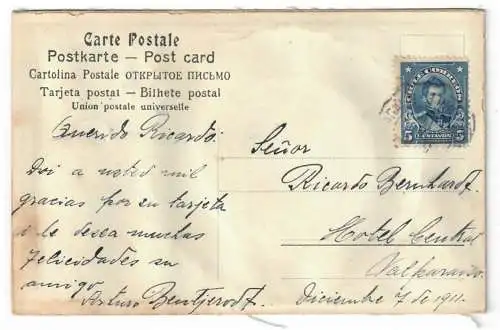 Carte Postale
Postkarte — Post card
Cartolina Postale ОТКРЫТОЕ ПИСЬМО
Tarjeta postal — Bilhete postal
Union postale universelle
CHILE CORREOS
5 5
CENTAVOS
Querido Ricardo.
Doi a usted mil
gracias por su tarjeta
i le desea muchas
felicidades su
amigo
Arturo Bentjerodt.
Señor
Ricardo Bernhardt.
Hotel Central
Valparaiso.
Diciembre 7 de 1911.